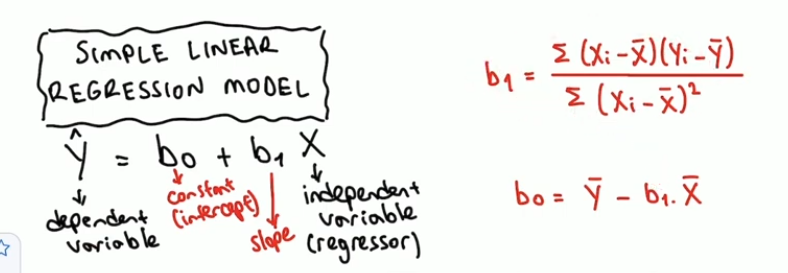 SIMPLE LINEAR
REGRESSION MODEL
Ŷ = b₀ + b₁ X
dependent
variable
constant
(intercept)
slope
independent
variable
(regressor)
b₁ = Σ (Xᵢ - X̄)(Yᵢ - Ȳ) / Σ (Xᵢ - X̄)²
b₀ = Ȳ - b₁ . X̄